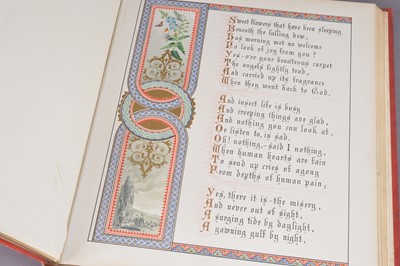 Sweet flowers that have been sleeping
Beneath the falling dew,
Has morning met no welcome
To look of joy from you?
Yes–o'er your beauteous carpet
The angels lightly trod,
And carried up its fragrance
When they went back to God.
And insect life is busy
And creeping things are glad,
And nothing you can look at,
Or listen to, is sad.
Oh! nothing,–said I nothing,
When human hearts are fain
To send up cries of agony
From depths of human pain;
Yes, there is is–the misery,
And never out of sight,
A surging tide by daylight,
A yawning gulf by night,